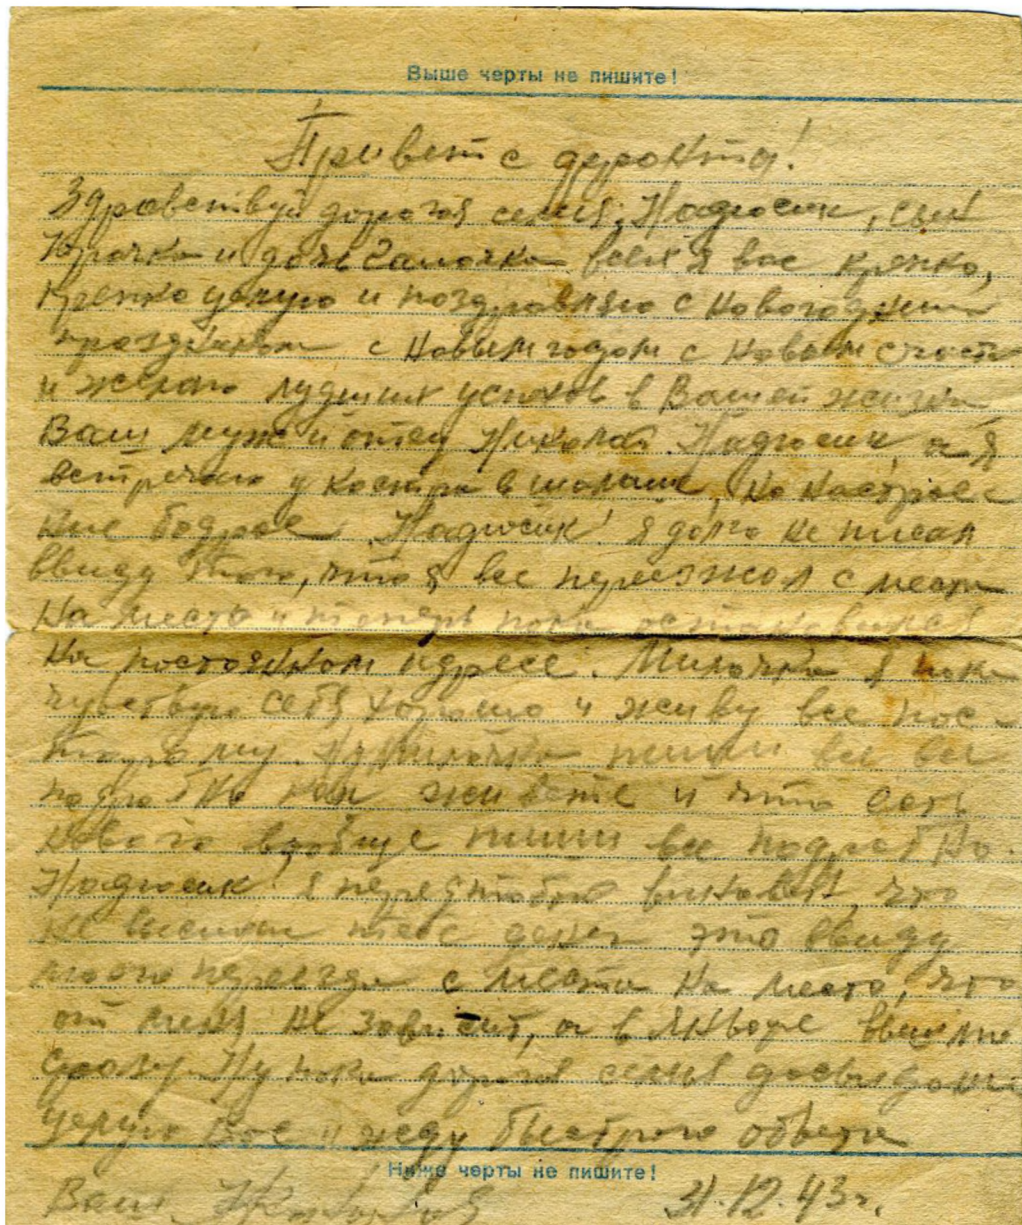 Выше черты не пишите!
Привет с фронта!
Здравствуй дорогая семья, Надюсик, сын
Юрочка и дочь Галочка всех я вас крепко,
крепко целую и поздравляю с новогодним
праздником с новым годом с новым счастьем
и желаю лучших успехов в Вашей жизни
Ваш муж и отец Николай. Надюсик, а я
встречаю у костра в шалаше, но настрое-
ние бодрое. Надюсик! я долго не писал
ввиду того, что я все переезжал с места
на место и теперь пока остановился
на постоянном адресе. Милочка я пока
чувствую себя хорошо и живу все пос-
тарому. Ну милочка пиши
подробно как живете и что есть
нового вообще пиши все подробно.
Надюсик! я перед тобой виноват, что
не выслал тебе денег это ввиду
моего переезда с места на место, что
от меня не зависит, а в январе вышлю
сразу. Ну пока дорогая семья досвидания
целую вас и жду быстрого ответа
Ниже черты не пишите!
Ваш Николай 31.12.43г.